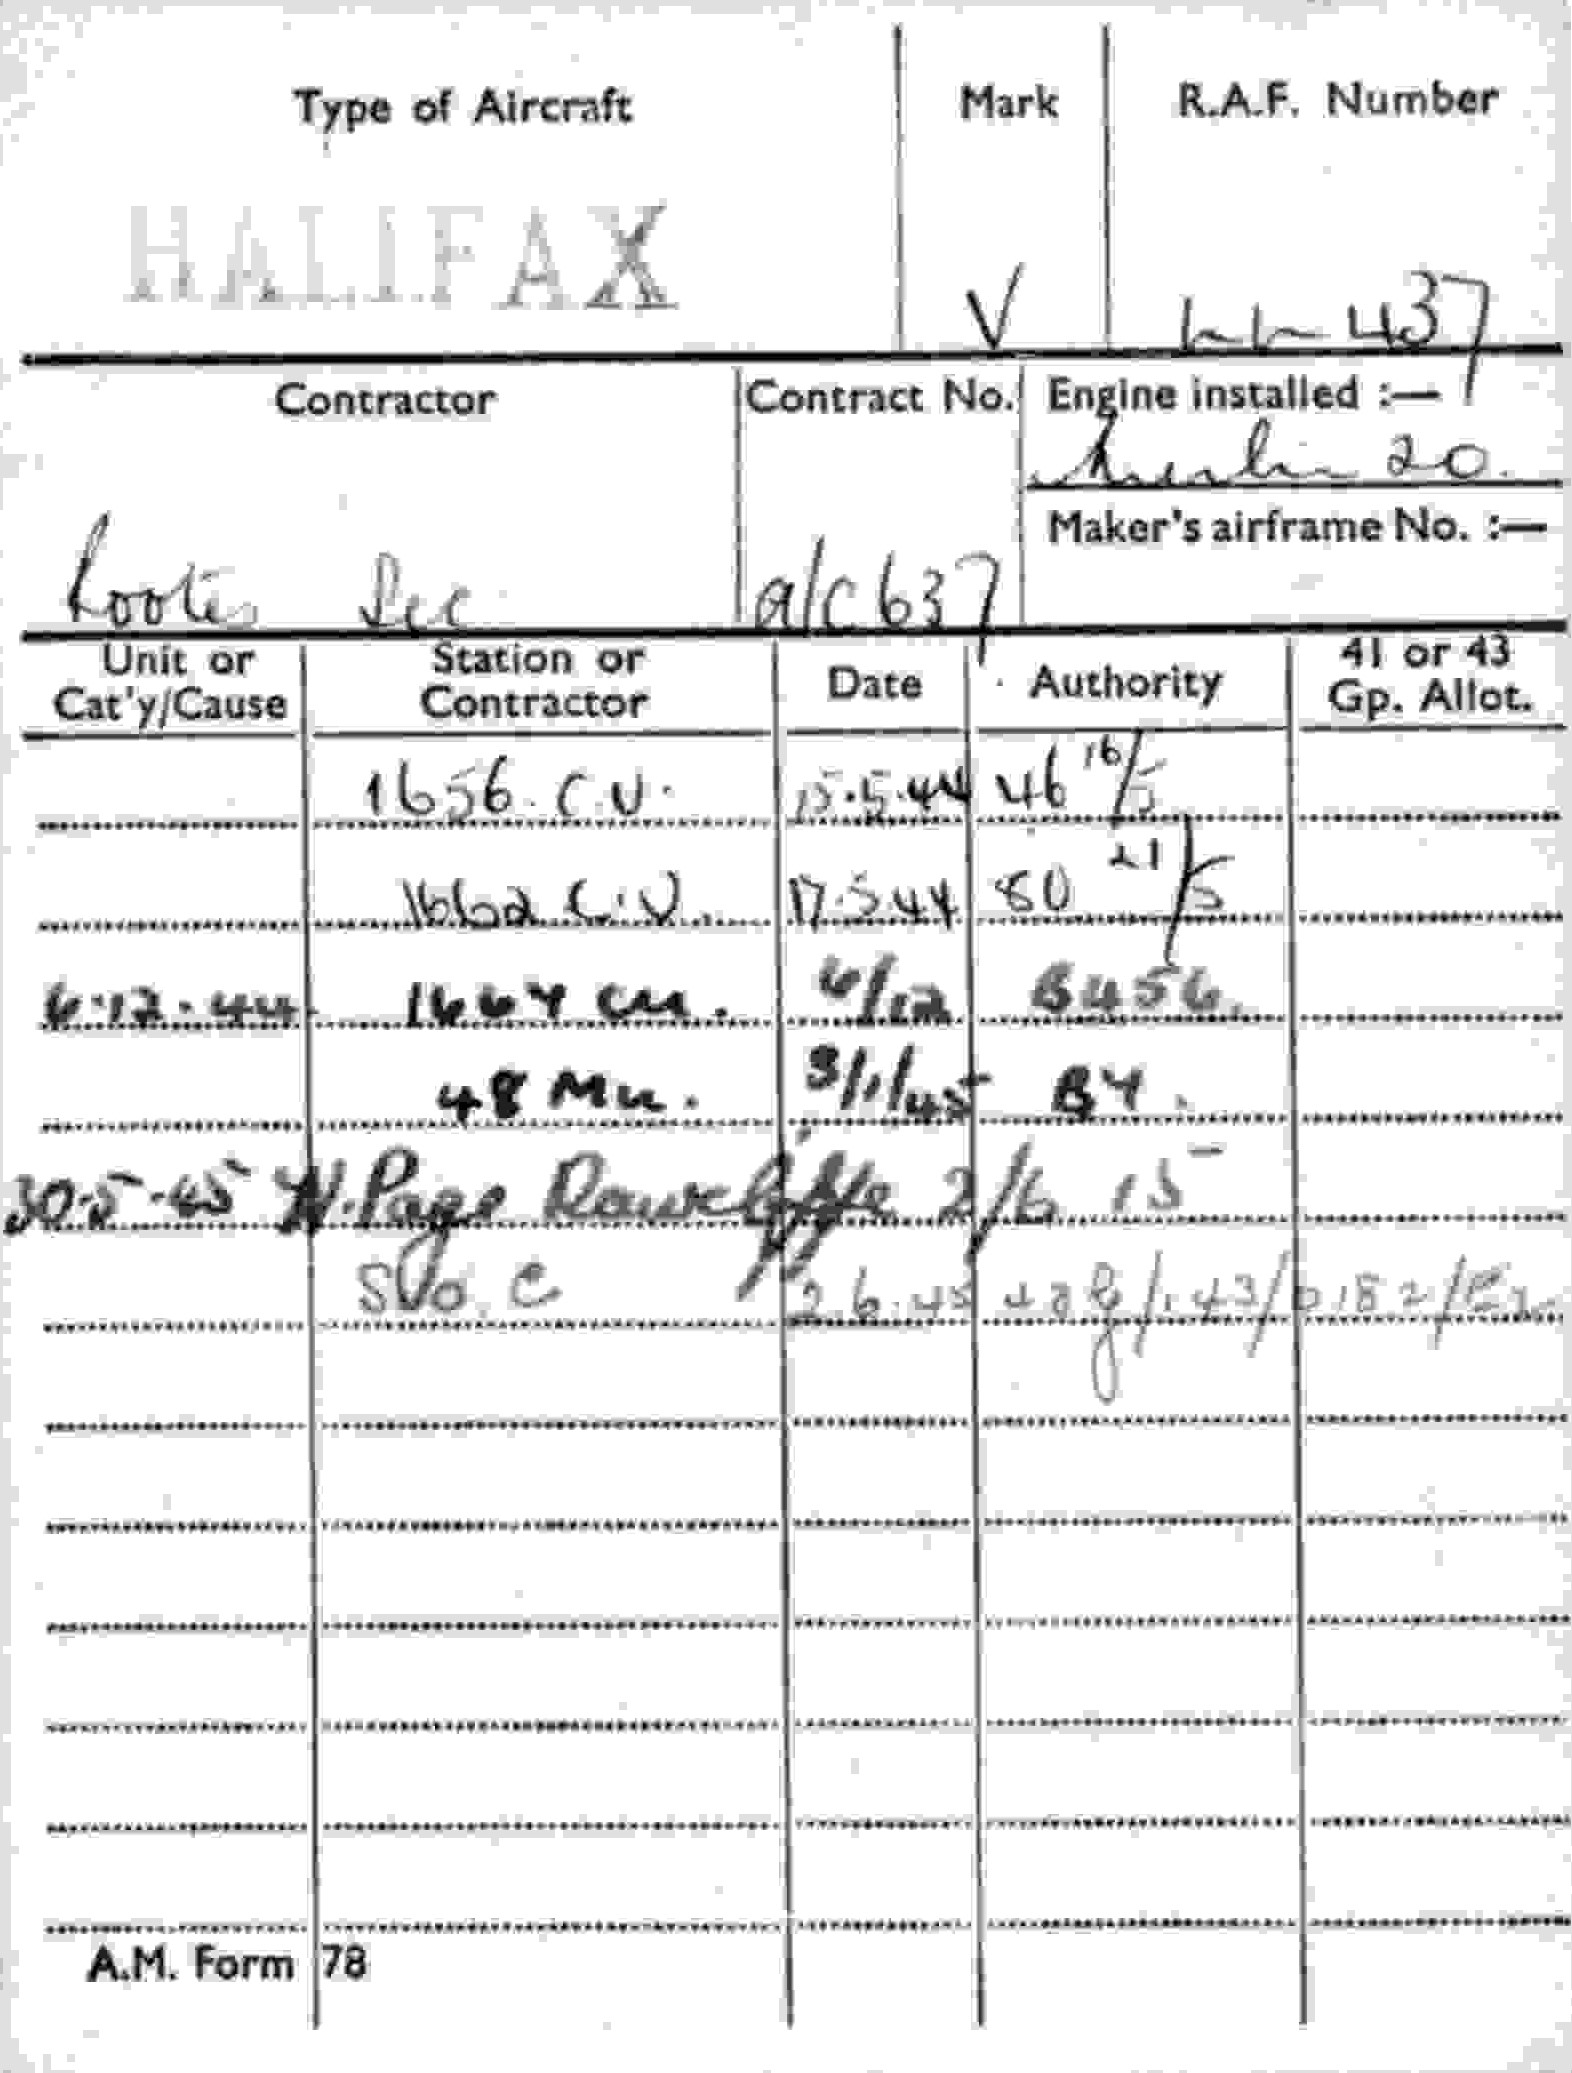 Type of Aircraft Mark R.A.F. Number
HALIFAX V LL 437
Contractor Contract No. Engine installed :—
Merlin 20.
Maker's airframe No. :—
Rootes Sec a/c 637
Unit or Cat'y/Cause Station or Contractor Date Authority 41 or 43 Gp. Allot.
1656. C.U. 15.5.44 46 16/5
1662 C.U. 17.5.44 80 21/5
6.12.44. 1664 CU. 6/12 B456.
48 MU. 3/1/45 B4.
30.5.45 H.Page Rawcliffe 2/6 15
SVO. C 2.6.45
A.M. Form 78